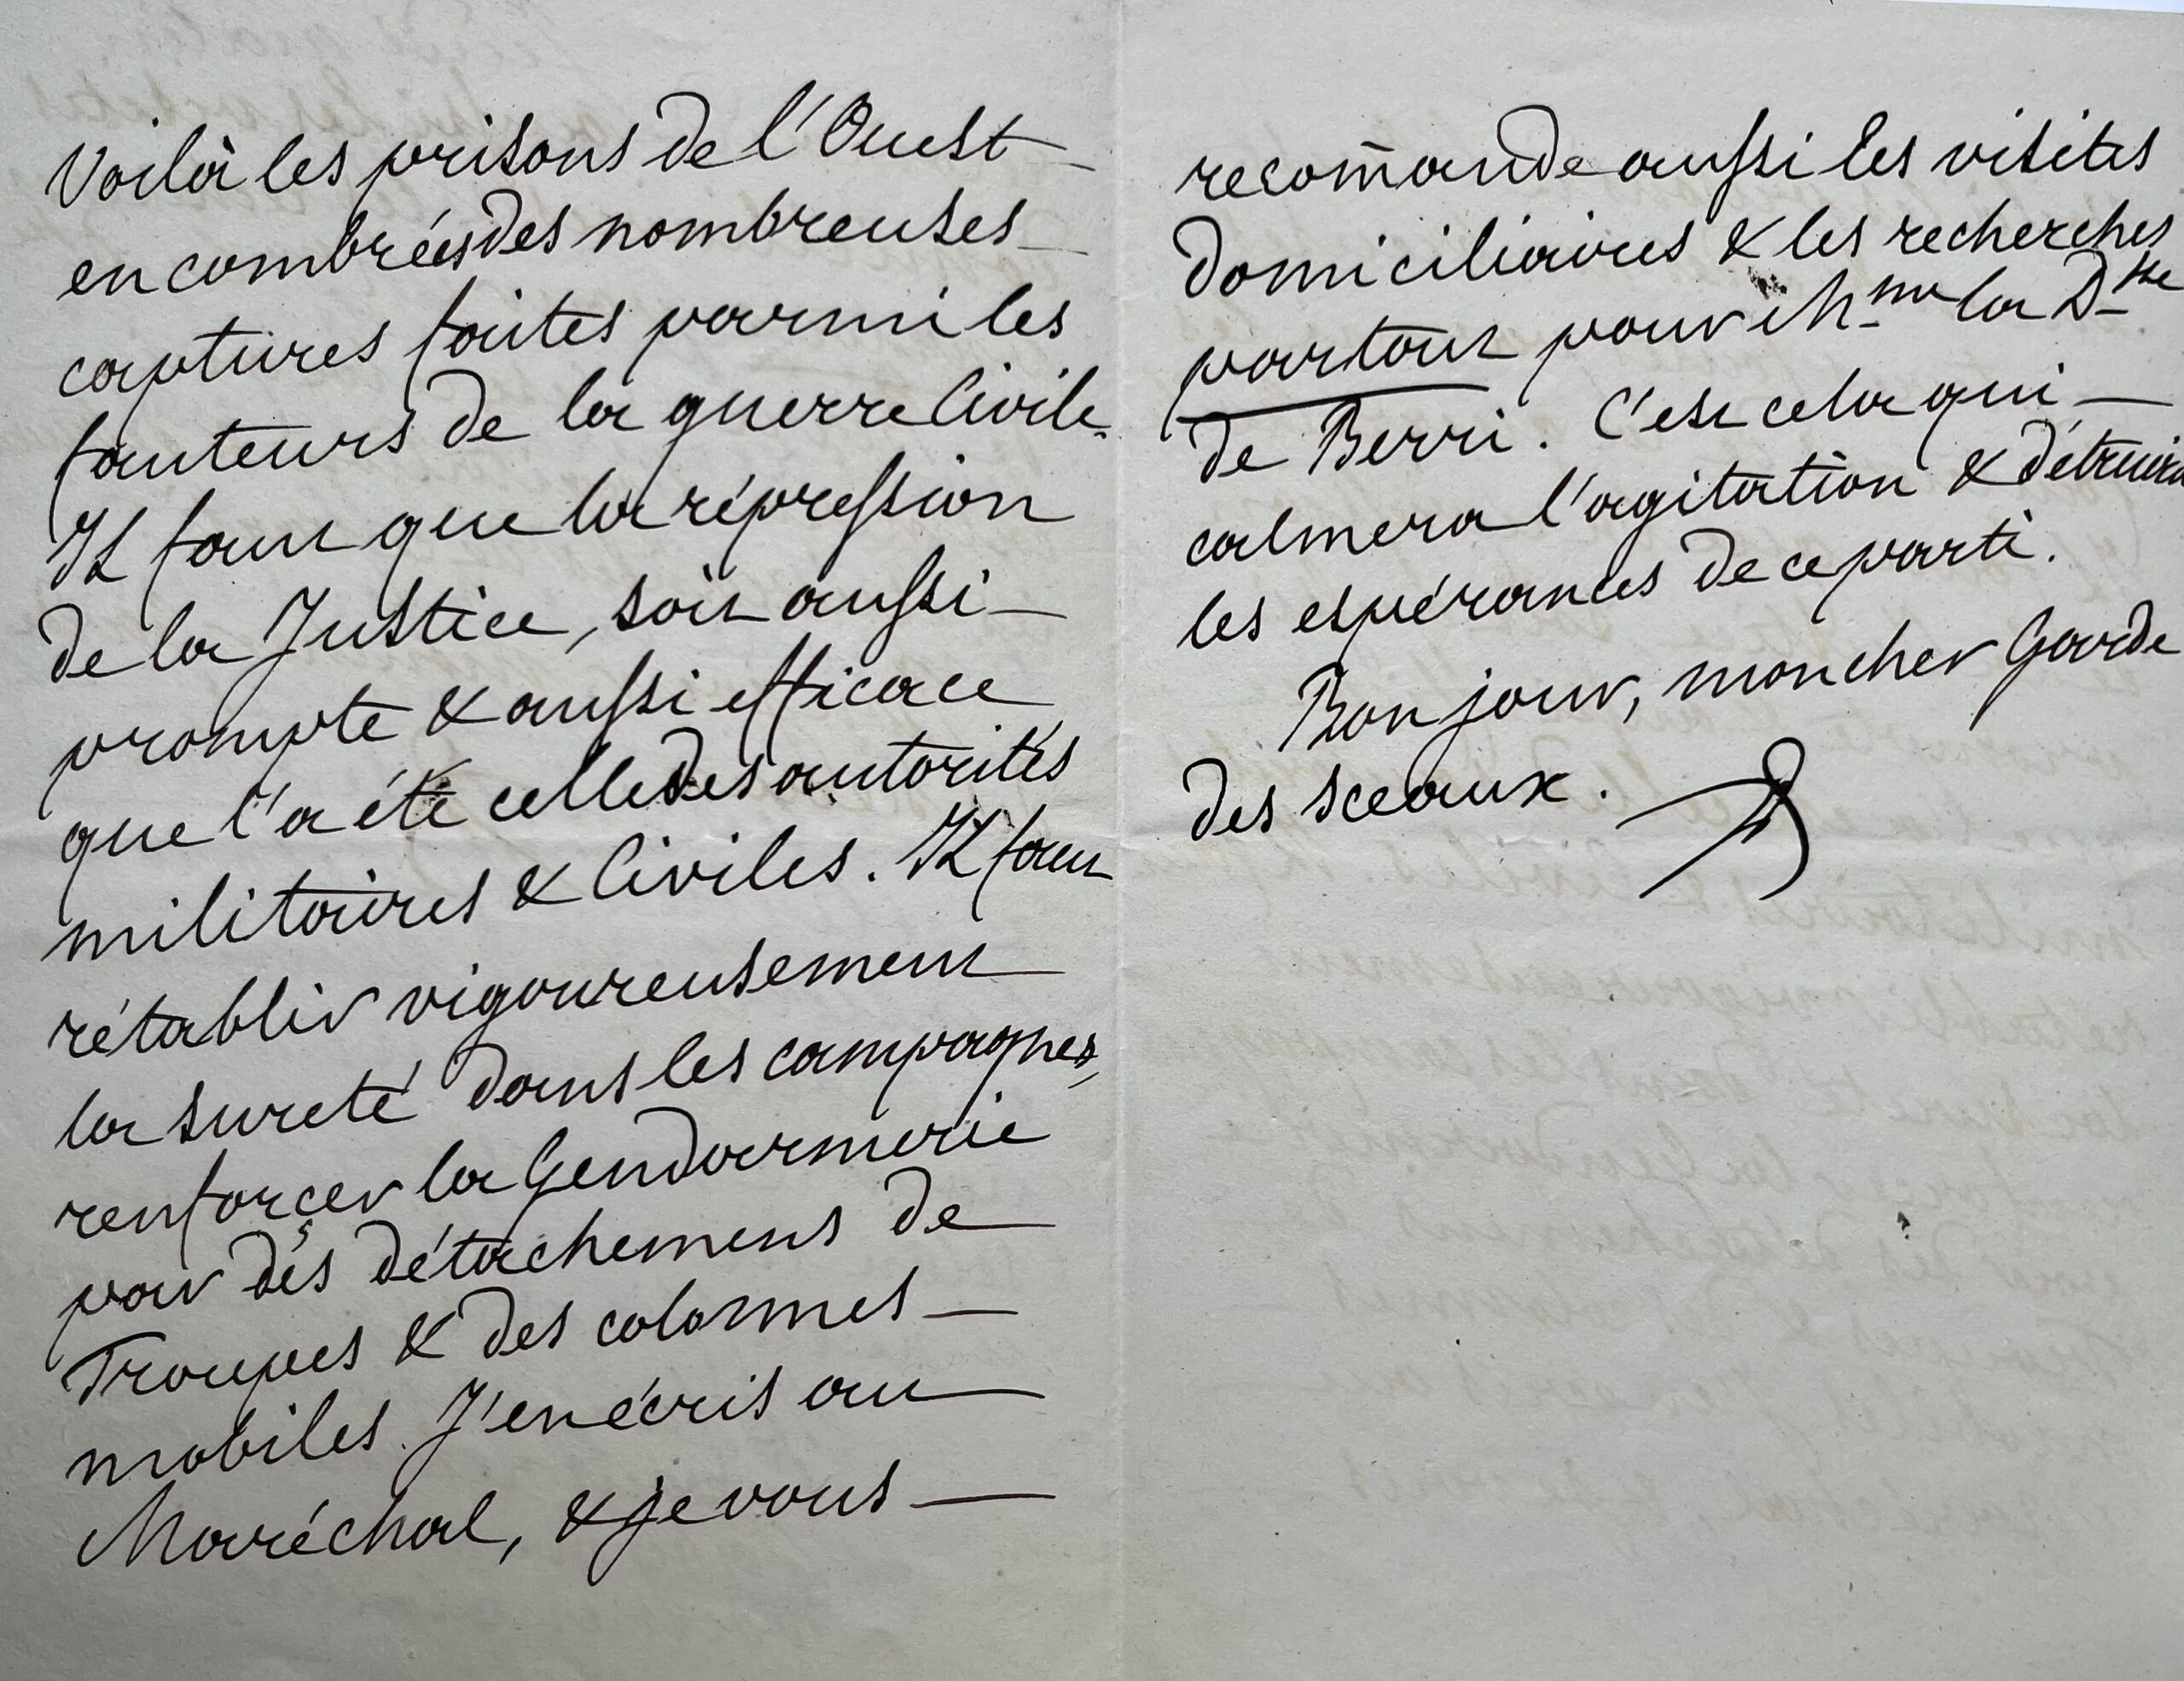 Voilà les prisons de l'Ouest
encombrées des nombreuses
captures faites parmi les
fauteurs de la guerre Civile.
Il faut que la répression
de la Justice, soit aussi
prompte & aussi efficace
que l'a été celle des autorités
militaires & Civiles. Il faut
rétablir vigoureusement
la sureté dans les campagnes,
renforçer la Gendarmerie
par des détachemens de
Troupes & des colonnes
mobiles. J'en écris au
Maréchal, & je vous
recom̄ande aussi les visites
domiciliaires & les recherches
partout pour Mme la Dsse
de Berri. C'est cela qui
calmera l'agitation & détruira
les espérances de ce parti.
Bonjour, mon cher Garde
des Sceaux.